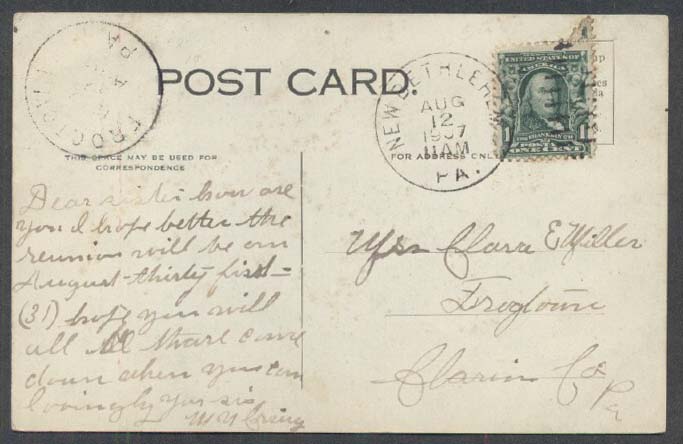 FROGTOWN PA
POST CARD.
NEW BETHLEHEM
AUG
12
1907
11AM
PA.
UNITED STATES OF AMERICA
1 1
FRANKLIN
POSTAGE
ONE CENT
THIS SPACE MAY BE USED FOR
CORRESPONDENCE
FOR ADDRESS ONLY
Dear sister how are
you I hope better the
reunion will be on
August thirty first
(31) hope you will
all be there come
down when you can
lovingly your sis
Mrs Clara E Miller
Frogtown
Clarion Co
Pa